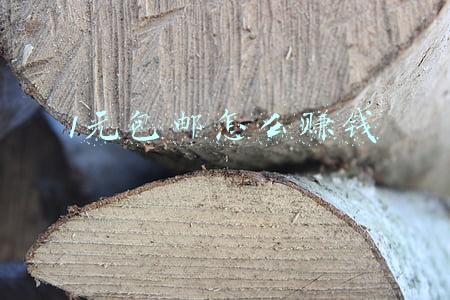 1元包邮怎么赚钱